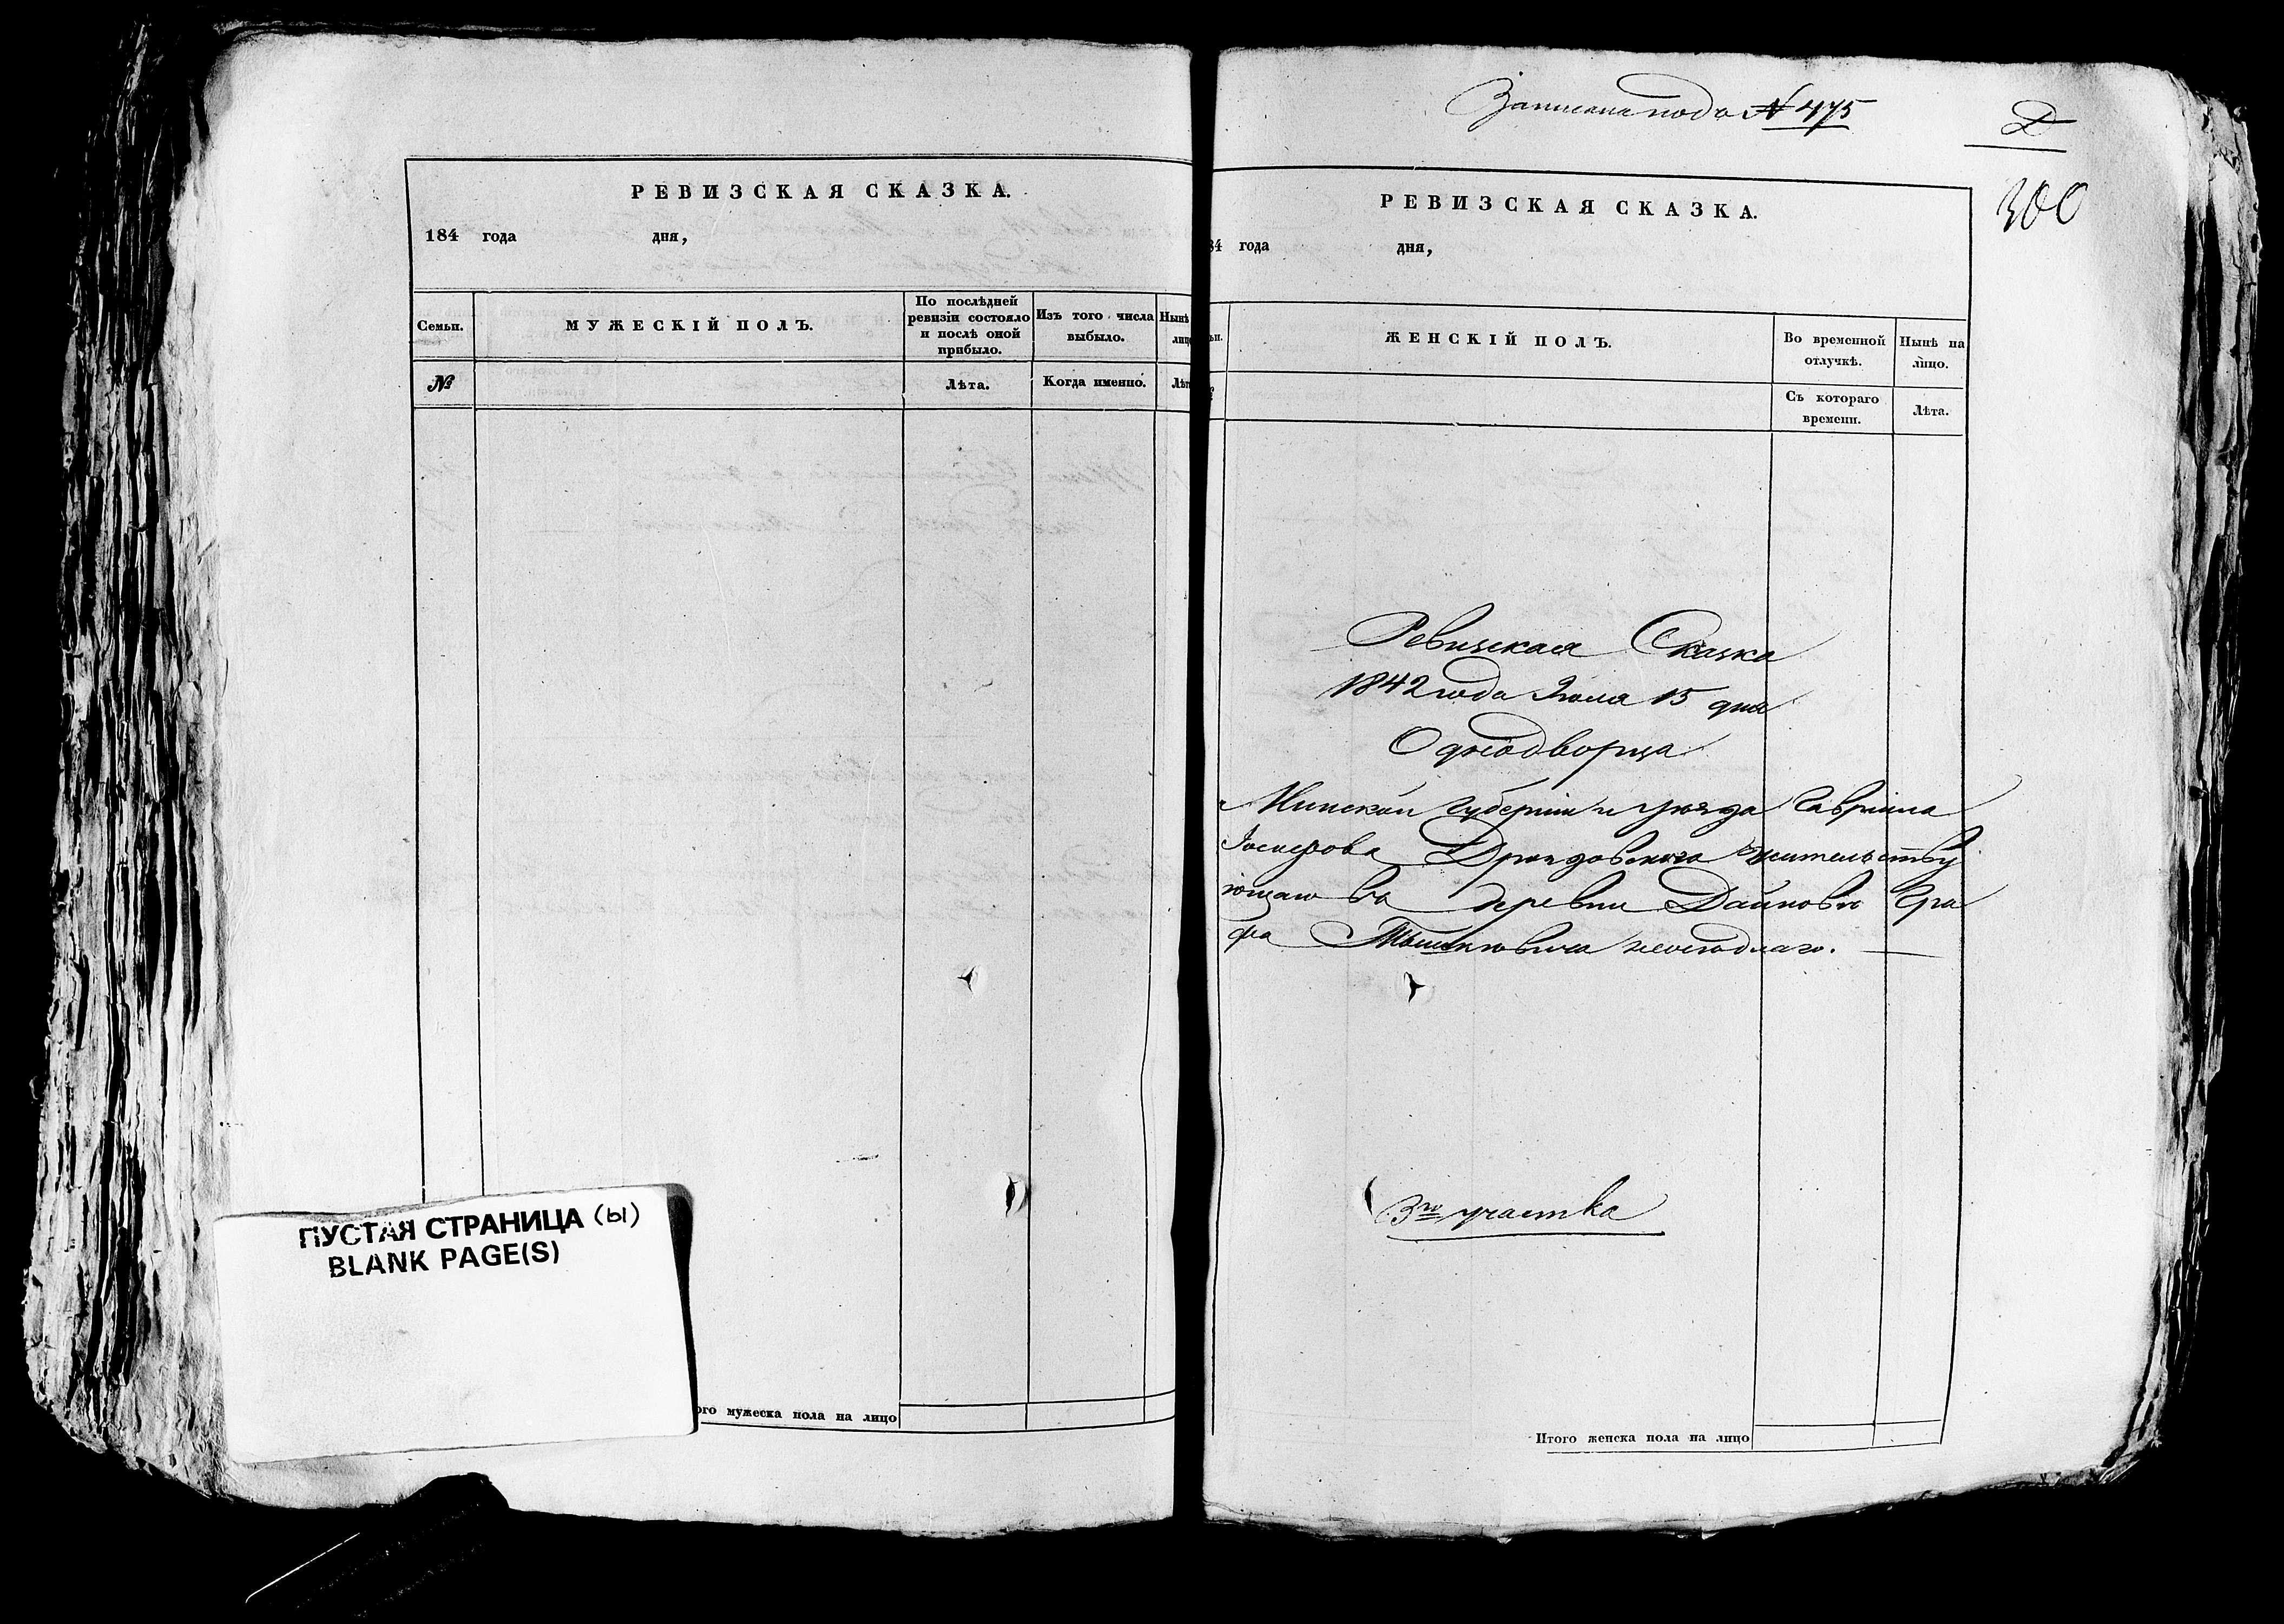 РЕВИЗСКАЯ СКАЗКА.
184 года дня,
Семьи.
МУЖЕСКІЙ ПОЛЪ.
По послѣдней ревизіи состояло и послѣ оной прибыло.
Изъ того числа выбыло.
Нынѣ
лиц
№
Лѣта.
Когда именно.
Лѣт
ПУСТАЯ СТРАНИЦА (ы)
BLANK PAGE(S)
ого мужеска пола на лицо
Записана подъ № 475
300
РЕВИЗСКАЯ СКАЗКА.
84 года дня,
ьи.
ЖЕНСКІЙ ПОЛЪ.
Во временной отлучкѣ.
Нынѣ на лицо.
Съ котораго времени.
Лѣта.
Ревизская Сказка
1842 года Іюля 15 дня
Однодворца
Минской Губерніи и уѣзда Гавріила
Іосифова жительству
ющаго въ деревни Дайновѣ Гра
фа Тышкевича неоседлаго.
3го участка
Итого женска пола на лицо